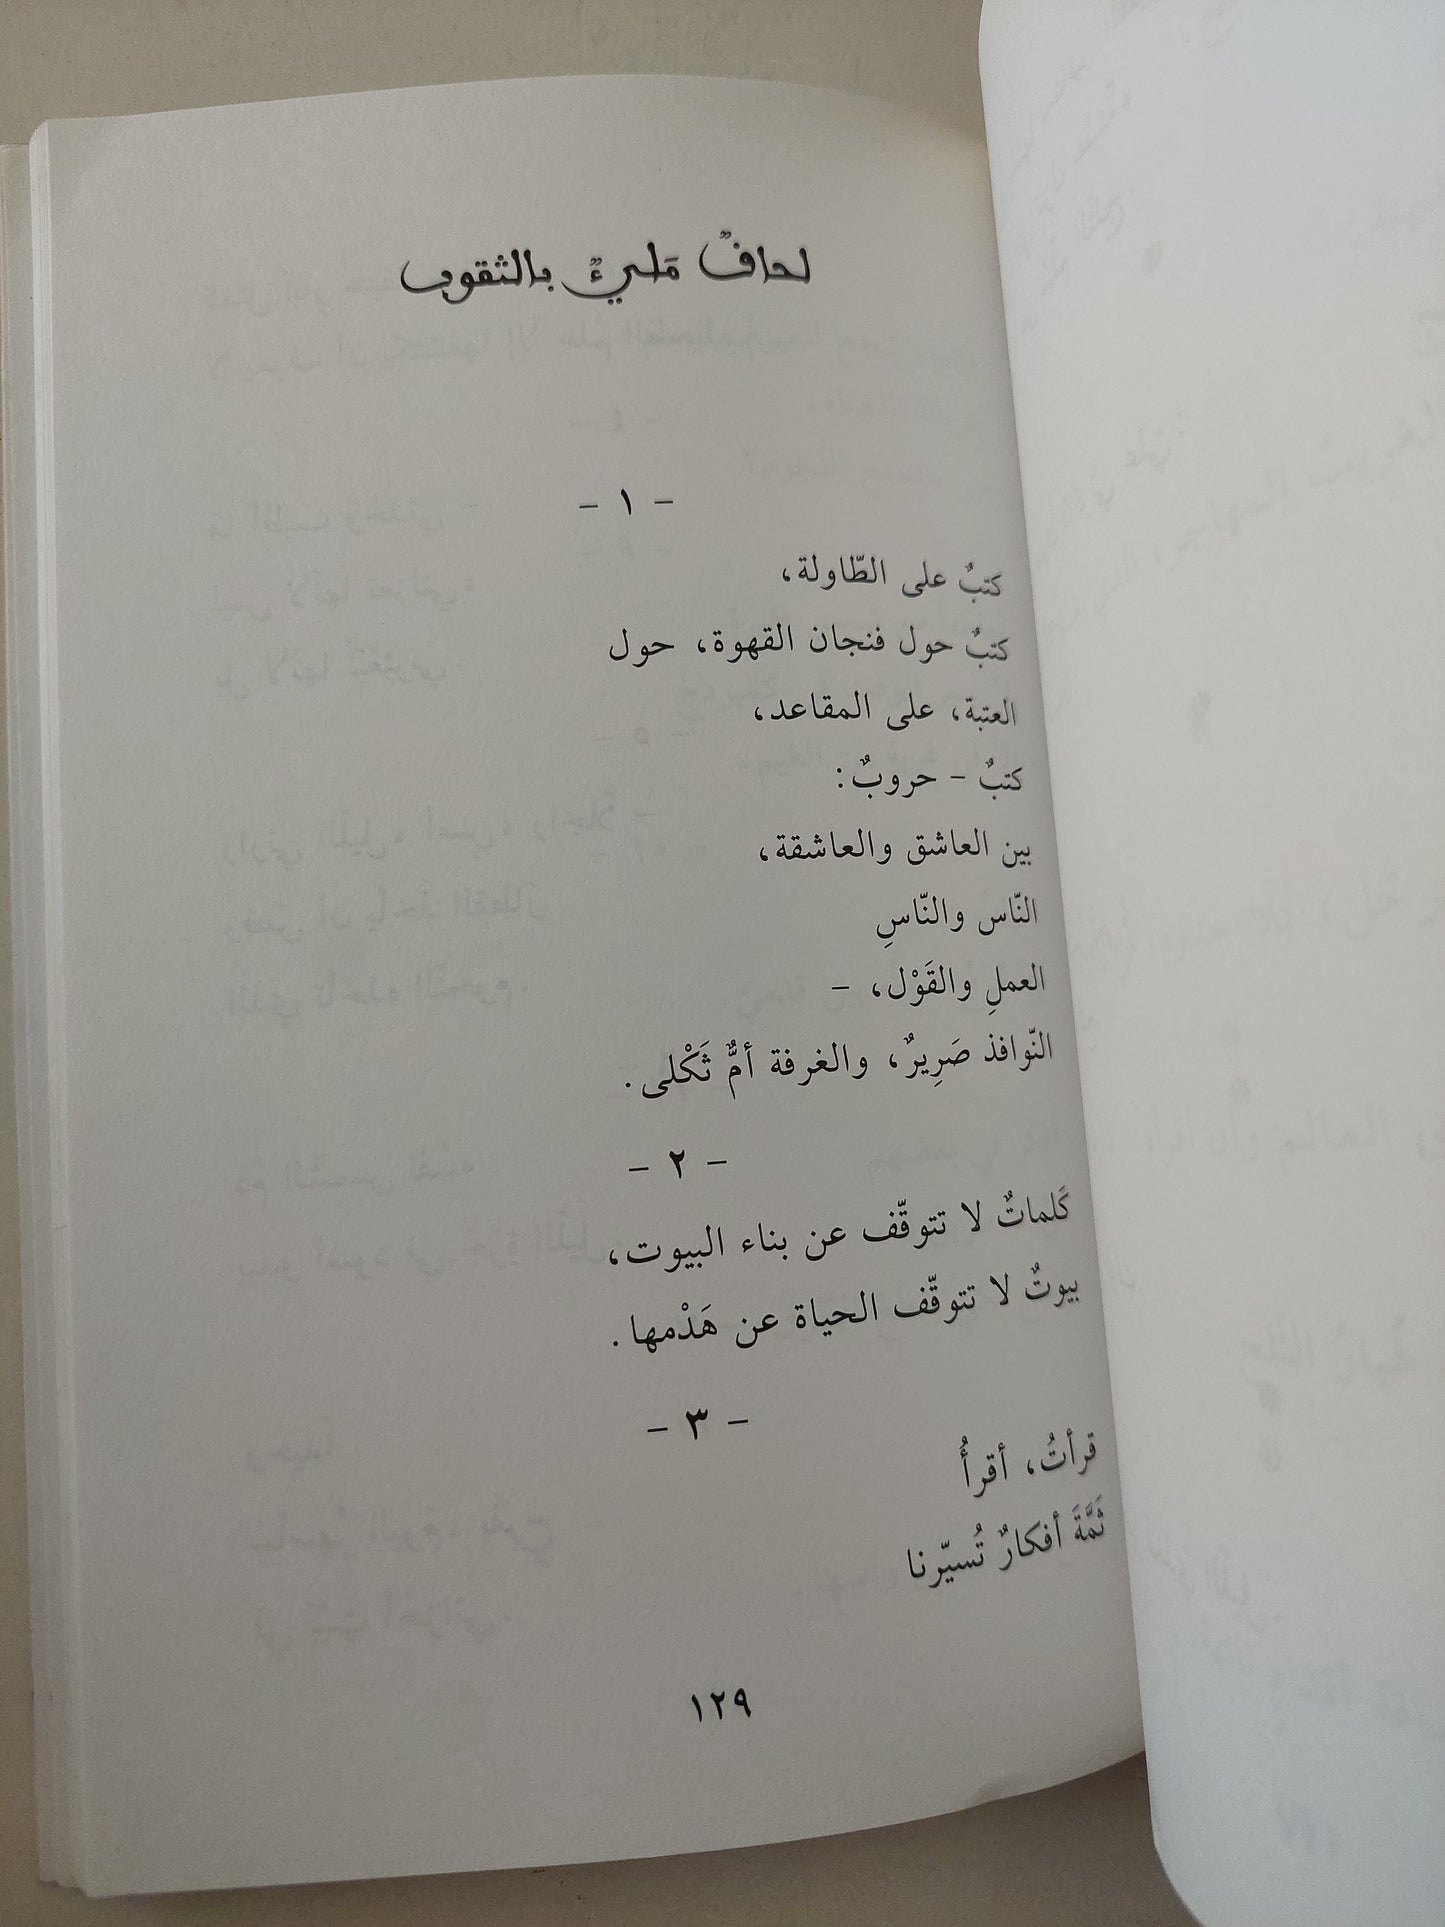 لحافٌ مَليءٌ بالثقوب
- ١ -
كتبٌ على الطّاولة،
كتبٌ حول فنجان القهوة، حول
العتبة، على المقاعد،
كتبٌ - حروبٌ:
بين العاشق والعاشقة،
النّاس والنّاسِ
العملِ والقَوْل، -
النّوافذ صَرِيرٌ، والغرفة أمٌّ ثَكْلى.
- ٢ -
كَلماتٌ لا تتوقّف عن بناء البيوت،
بيوتٌ لا تتوقّف الحياة عن هَدْمها.
- ٣ -
قرأتُ، أقرأُ
ثَمَّةَ أفكارٌ تُسيّرنا
١٢٩